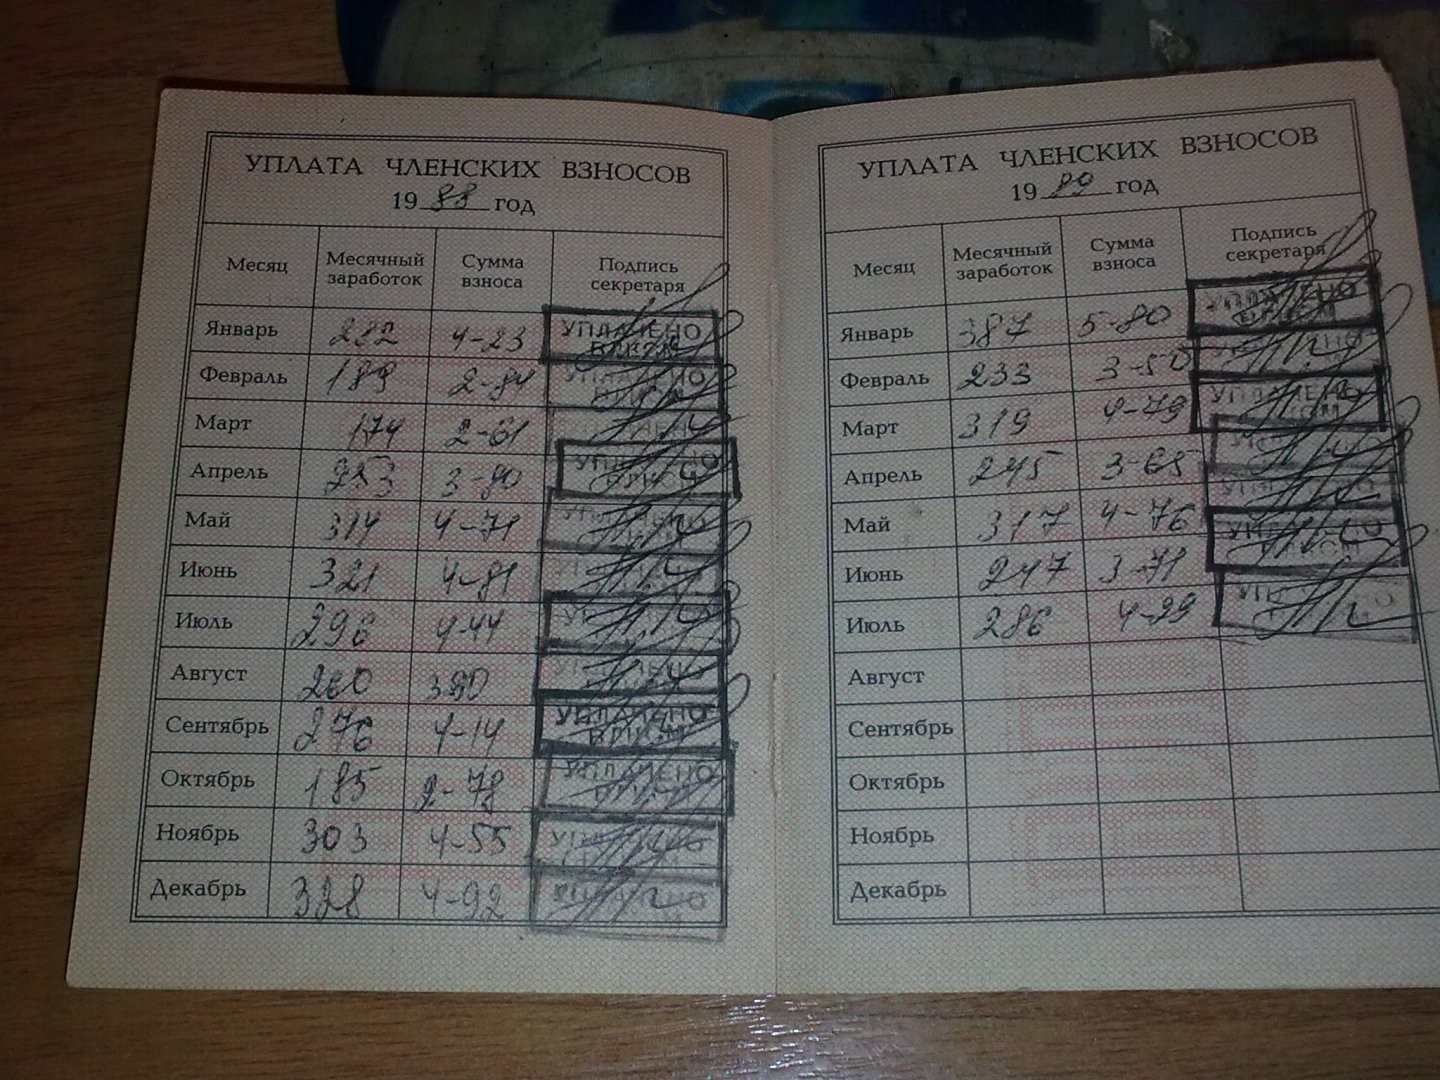 УПЛАТА ЧЛЕНСКИХ ВЗНОСОВ
1988 год
Месяц Месячный заработок Сумма взноса Подпись секретаря
Январь 282 4-23 УПЛАЧЕНО ВЛКСМ
Февраль 189 2-84 УПЛАЧЕНО
Март 174 2-61 УПЛАЧЕНО
Апрель 253 3-80 УПЛАЧЕНО
Май 314 4-71 УПЛАЧЕНО
Июнь 321 4-81
Июль 296 4-44 УПЛАЧЕНО
Август 260 390 УПЛАЧЕНО
Сентябрь 276 4-14 УПЛАЧЕНО ВЛКСМ
Октябрь 185 2-78 УПЛАЧЕНО
Ноябрь 303 4-55 УПЛАЧЕНО
Декабрь 328 4-92
УПЛАТА ЧЛЕНСКИХ ВЗНОСОВ
1989 год
Месяц Месячный заработок Сумма взноса Подпись секретаря
Январь 387 5-80 УПЛАЧЕНО ВЛКСМ
Февраль 233 3-50
Март 319 4-79 УПЛАЧЕНО ВЛКСМ
Апрель 245 3-65
Май 317 4-76
Июнь 247 3-71 УПЛАЧЕНО ВЛКСМ
Июль 286 4-29
Август
Сентябрь
Октябрь
Ноябрь
Декабрь